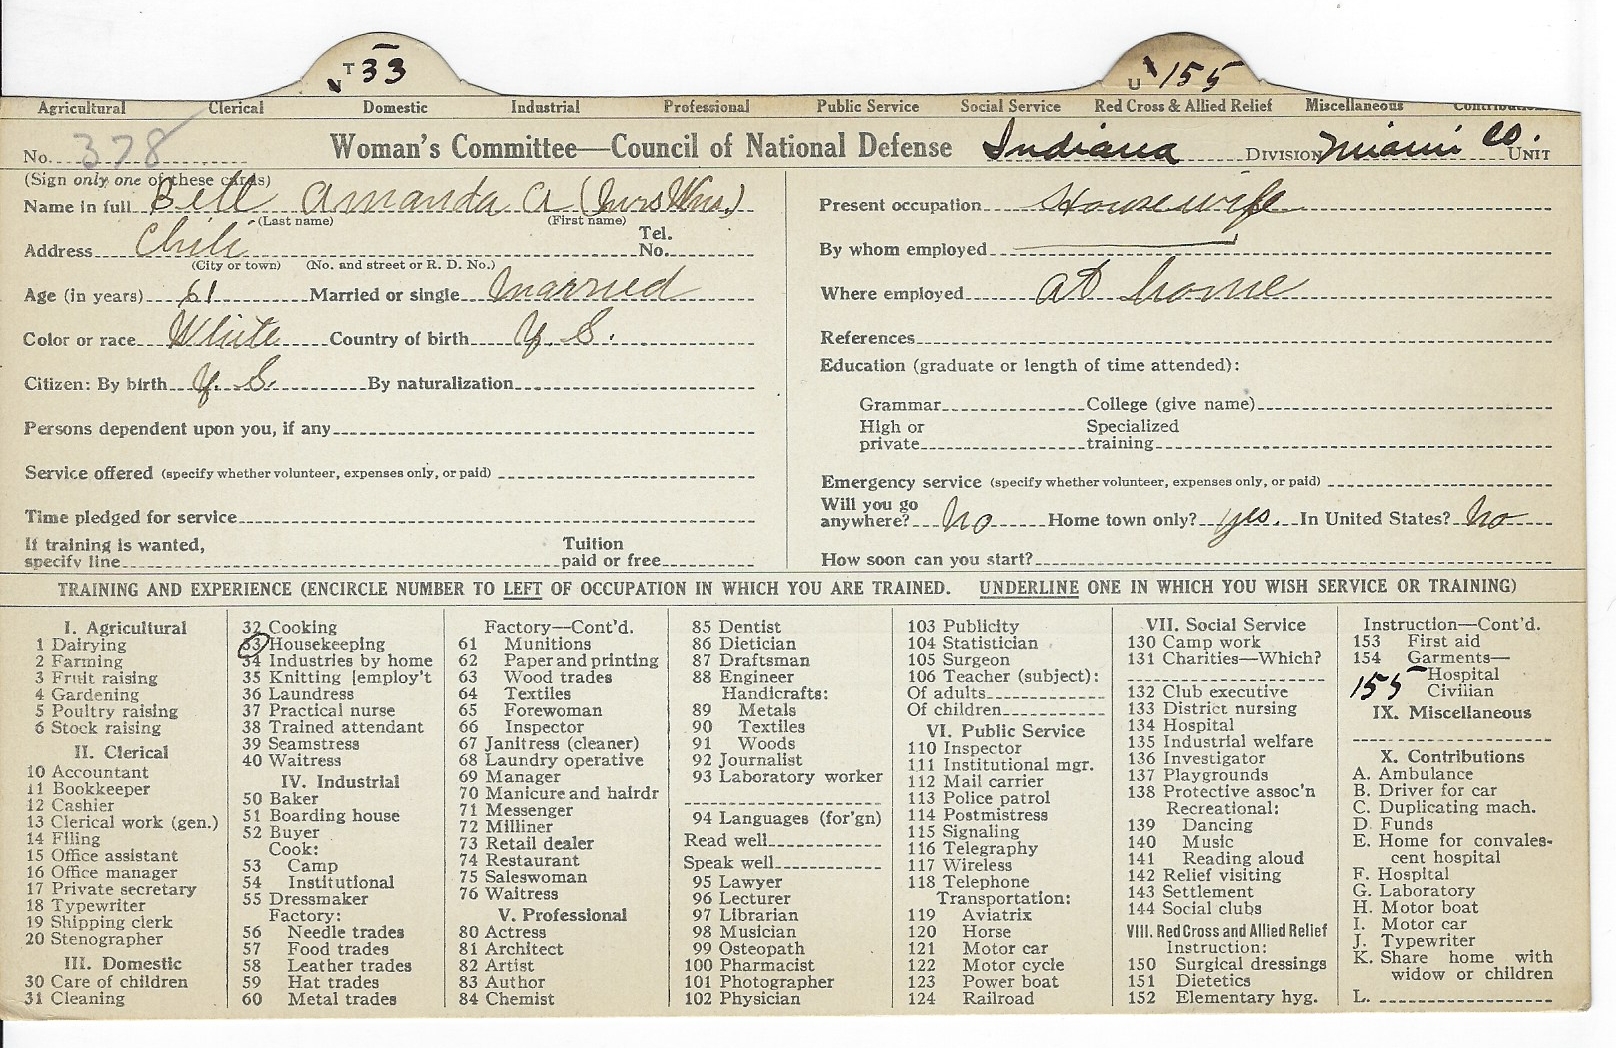 T 33
U 155
Agricultural Clerical Domestic Industrial Professional Public Service Social Service Red Cross & Allied Relief Miscellaneous
No. 378 Woman's Committee—Council of National Defense Indiana DIVISION Miami Co. UNIT
(Sign only one of these cards)
Name in full Bell Amanda A (Mrs Wm.)
(Last name) (First name)
Address Chili Tel. No.
(City or town) (No. and street or R. D. No.)
Age (in years) 61 Married or single Married
Color or race White Country of birth U. S.
Citizen: By birth U. S. By naturalization
Persons dependent upon you, if any
Service offered (specify whether volunteer, expenses only, or paid)
Time pledged for service
If training is wanted, specify line Tuition paid or free
Present occupation Housewife
By whom employed
Where employed at home
References
Education (graduate or length of time attended):
Grammar College (give name)
High or private Specialized training
Emergency service (specify whether volunteer, expenses only, or paid)
Will you go anywhere? no Home town only? yes. In United States? no
How soon can you start?
TRAINING AND EXPERIENCE (ENCIRCLE NUMBER TO LEFT OF OCCUPATION IN WHICH YOU ARE TRAINED. UNDERLINE ONE IN WHICH YOU WISH SERVICE OR TRAINING)
I. Agricultural
1 Dairying
2 Farming
3 Fruit raising
4 Gardening
5 Poultry raising
6 Stock raising
II. Clerical
10 Accountant
11 Bookkeeper
12 Cashier
13 Clerical work (gen.)
14 Filing
15 Office assistant
16 Office manager
17 Private secretary
18 Typewriter
19 Shipping clerk
20 Stenographer
III. Domestic
30 Care of children
31 Cleaning
32 Cooking
33 Housekeeping
34 Industries by home
35 Knitting [employ't
36 Laundress
37 Practical nurse
38 Trained attendant
39 Seamstress
40 Waitress
IV. Industrial
50 Baker
51 Boarding house
52 Buyer
Cook:
53 Camp
54 Institutional
55 Dressmaker
Factory:
56 Needle trades
57 Food trades
58 Leather trades
59 Hat trades
60 Metal trades
Factory—Cont'd.
61 Munitions
62 Paper and printing
63 Wood trades
64 Textiles
65 Forewoman
66 Inspector
67 Janitress (cleaner)
68 Laundry operative
69 Manager
70 Manicure and hairdr
71 Messenger
72 Milliner
73 Retail dealer
74 Restaurant
75 Saleswoman
76 Waitress
V. Professional
80 Actress
81 Architect
82 Artist
83 Author
84 Chemist
85 Dentist
86 Dietician
87 Draftsman
88 Engineer
Handicrafts:
89 Metals
90 Textiles
91 Woods
92 Journalist
93 Laboratory worker
94 Languages (for'gn)
Read well
Speak well
95 Lawyer
96 Lecturer
97 Librarian
98 Musician
99 Osteopath
100 Pharmacist
101 Photographer
102 Physician
103 Publicity
104 Statistician
105 Surgeon
106 Teacher (subject):
Of adults
Of children
VI. Public Service
110 Inspector
111 Institutional mgr.
112 Mail carrier
113 Police patrol
114 Postmistress
115 Signaling
116 Telegraphy
117 Wireless
118 Telephone
Transportation:
119 Aviatrix
120 Horse
121 Motor car
122 Motor cycle
123 Power boat
124 Railroad
VII. Social Service
130 Camp work
131 Charities—Which?
132 Club executive
133 District nursing
134 Hospital
135 Industrial welfare
136 Investigator
137 Playgrounds
138 Protective assoc'n
Recreational:
139 Dancing
140 Music
141 Reading aloud
142 Relief visiting
143 Settlement
144 Social clubs
VIII. Red Cross and Allied Relief
Instruction:
150 Surgical dressings
151 Dietetics
152 Elementary hyg.
Instruction—Cont'd.
153 First aid
154 Garments—
Hospital
155 Civilian
IX. Miscellaneous
X. Contributions
A. Ambulance
B. Driver for car
C. Duplicating mach.
D. Funds
E. Home for convales-
cent hospital
F. Hospital
G. Laboratory
H. Motor boat
I. Motor car
J. Typewriter
K. Share home with
widow or children
L.